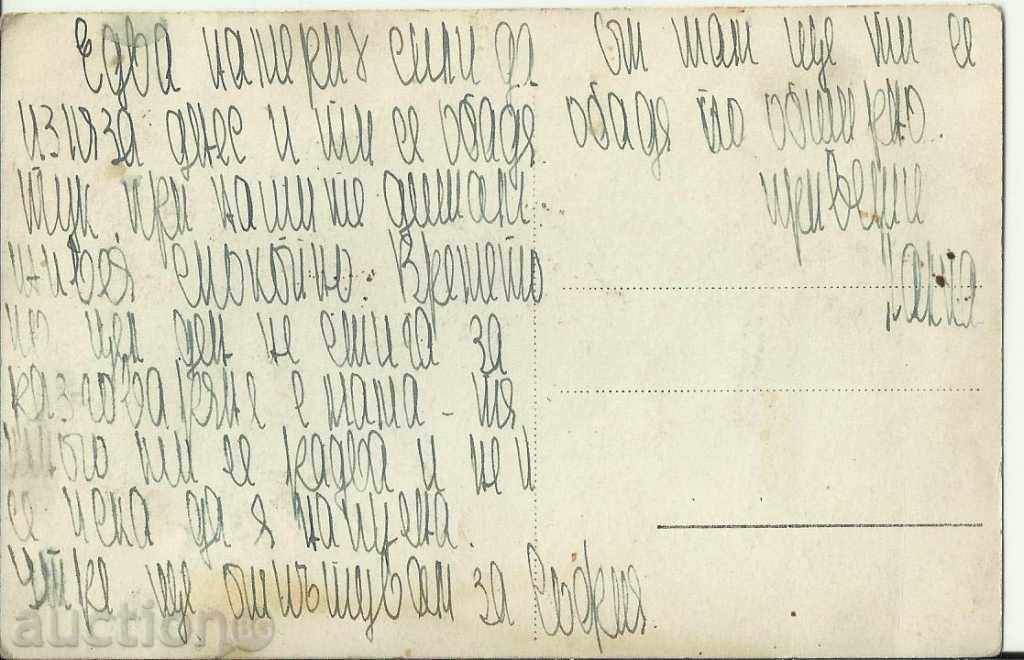 Едва намерих сили да
изляза днес и ти се обадя
тук при нашите
спокойно. Времето
цял ден не стига за
разговаряне с мама – тя
много ми се радва и не и
се иска да я напусна.
Утре ще отпътувам за София.
От там ще ти се
обадя по обширно.
привет
auction